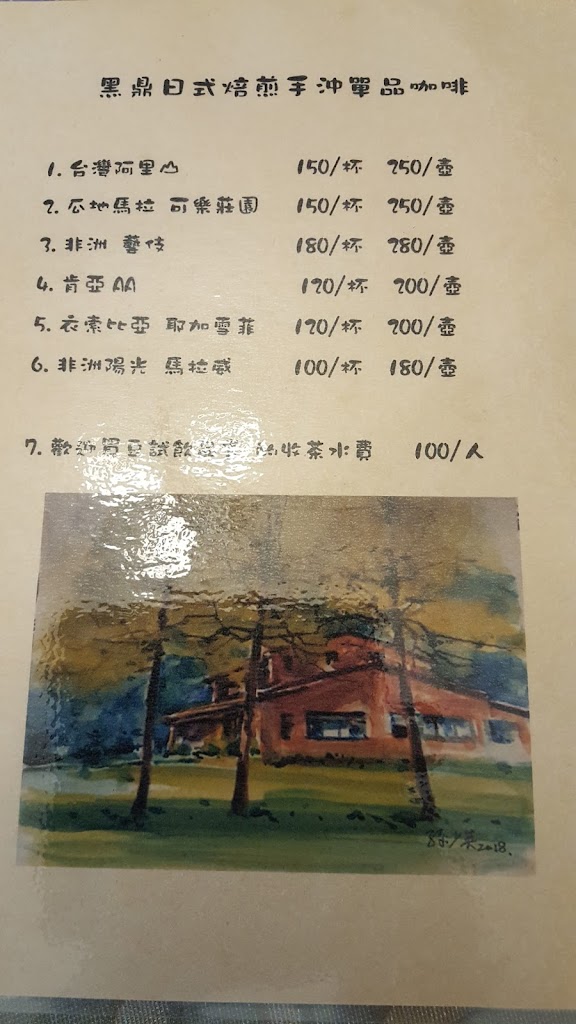 黑鼎日式焙煎手沖單品咖啡
1. 台灣阿里山 150/杯 250/壺
2. 瓜地馬拉 可樂莊園 150/杯 250/壺
3. 非洲 藝伎 180/杯 280/壺
4. 肯亞AA 120/杯 200/壺
5. 衣索比亞 耶加雪菲 120/杯 200/壺
6. 非洲陽光 馬拉威 100/杯 180/壺
7. 歡迎買豆試飲 收茶水費 100/人
2018.